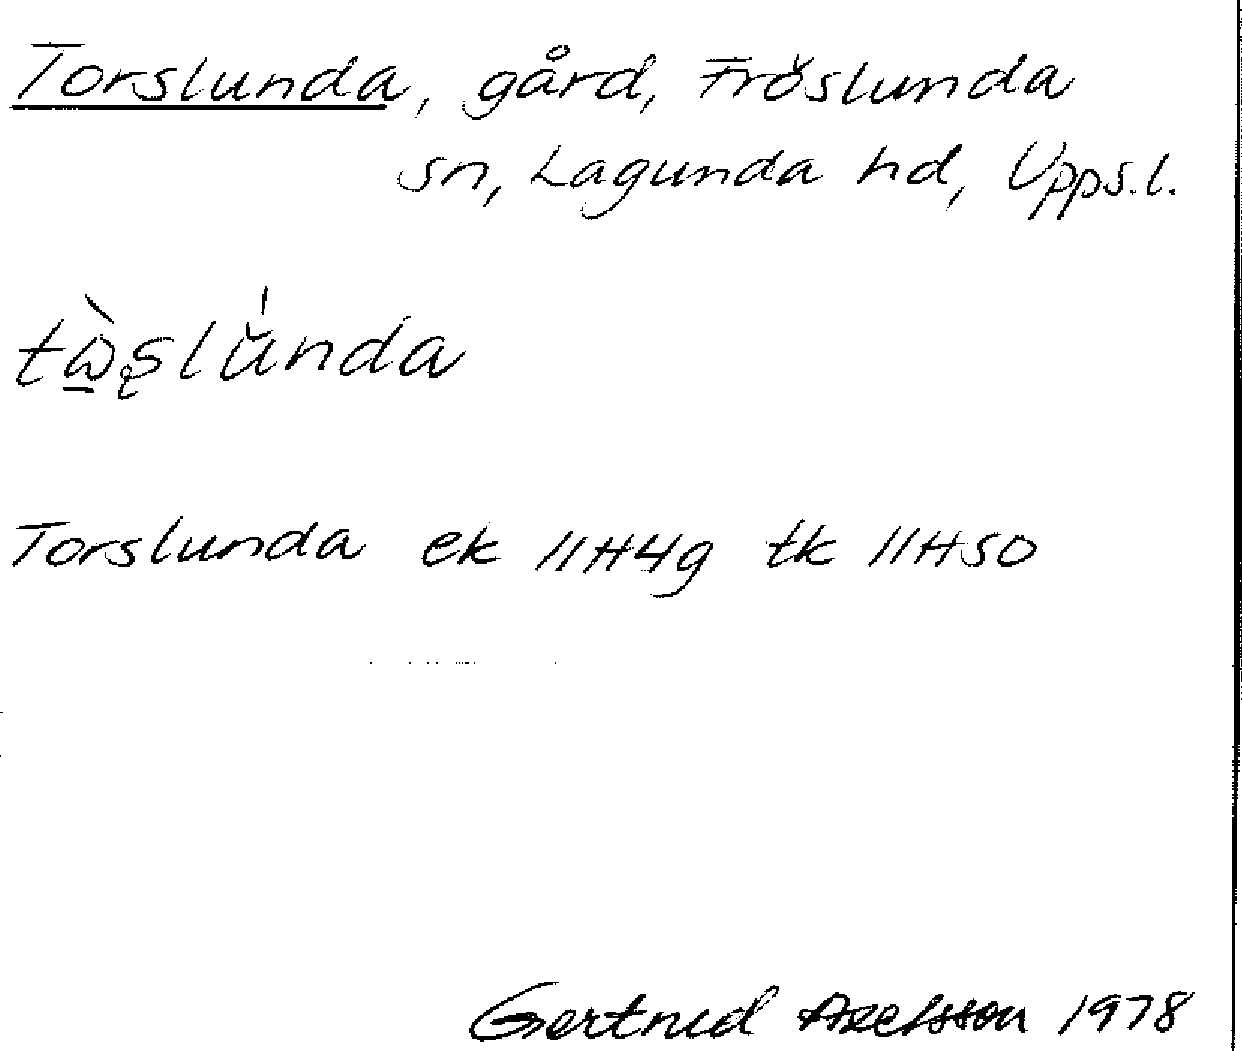 Torslunda, gård, Fröslunda
sn, Lagunda hd, Upps.l.
tὼ̱ʂlŭ́nda
Torslunda ek 11H4g tk 11H50
Gertrud Axelsson 1978